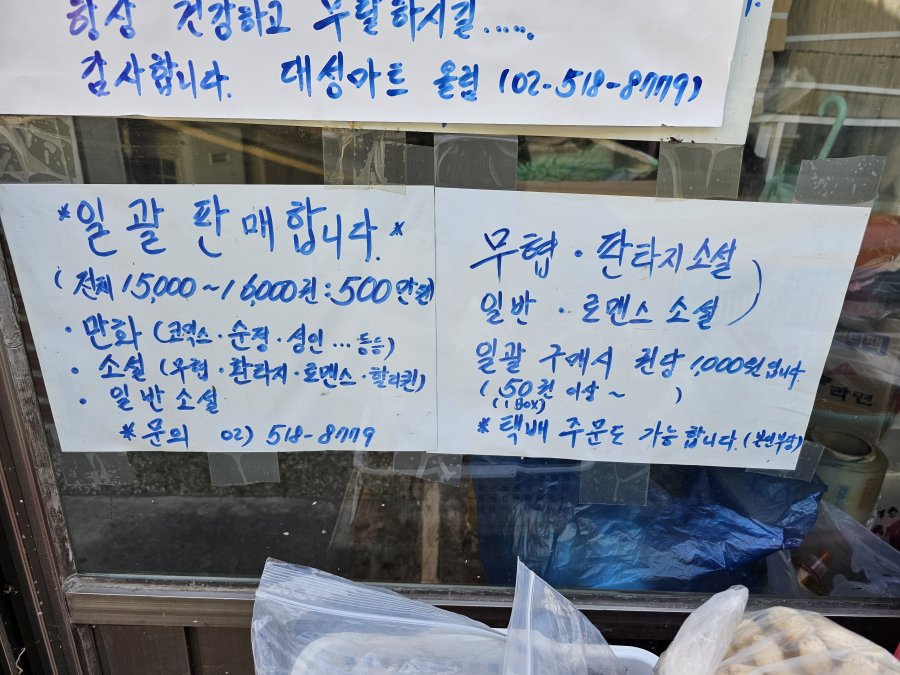 항상 건강하고 무탈하시길.....
감사합니다. 대성마트 올림 (02-518-8779)
*일괄 판매합니다.*
(전체 15,000~16,000권:500만원)
· 만화 (코믹스·순정·성인...등등)
· 소설 (무협·환타지·로맨스·할리퀸)
· 일반소설
*문의 02) 518-8779
무협 · 판타지소설
일반 · 로맨스 소설)
일괄 구매시 권당 1,000원입니다
(50권 이상~ )
(1 BOX)
*택배 주문도 가능합니다. (본인부담)
라면